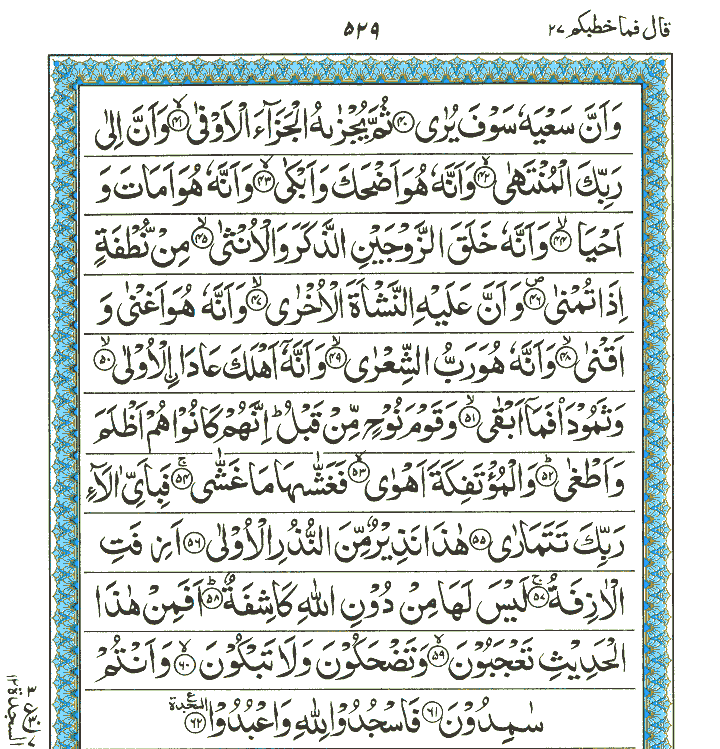 قال فما خطبكم ٢٧
٥٢٩
وَاَنَّ سَعْيَهٗ سَوْفَ يُرٰى ۪﴿۴۰﴾ ثُمَّ يُجْزٰىهُ الْجَزَآءَ الْاَوْفٰى ۙ﴿۴۱﴾ وَاَنَّ اِلٰى
رَبِّكَ الْمُنْتَهٰى ۙ﴿۴۲﴾ وَاَنَّهٗ هُوَ اَضْحَكَ وَاَبْكٰى ۙ﴿۴۳﴾ وَاَنَّهٗ هُوَ اَمَاتَ وَ
اَحْيَا ۙ﴿۴۴﴾ وَاَنَّهٗ خَلَقَ الزَّوْجَيْنِ الذَّكَرَ وَالْاُنْثٰى ۙ﴿۴۵﴾ مِنْ نُّطْفَةٍ
اِذَا تُمْنٰى ۪﴿۴۶﴾ وَاَنَّ عَلَيْهِ النَّشْاَةَ الْاُخْرٰى ۙ﴿۴۷﴾ وَاَنَّهٗ هُوَ اَغْنٰى وَ
اَقْنٰى ۙ﴿۴۸﴾ وَاَنَّهٗ هُوَ رَبُّ الشِّعْرٰى ۙ﴿۴۹﴾ وَاَنَّهٗۤ اَهْلَكَ عَادَا ۨالْاُوْلٰى ۙ﴿۵۰﴾
وَثَمُوْدَا۠ فَمَاۤ اَبْقٰى ۙ﴿۵۱﴾ وَقَوْمَ نُوْحٍ مِّنْ قَبْلُ ؕ اِنَّهُمْ كَانُوْا هُمْ اَظْلَمَ
وَاَطْغٰى ؕ﴿۵۲﴾ وَالْمُؤْتَفِكَةَ اَهْوٰى ۙ﴿۵۳﴾ فَغَشّٰىهَا مَا غَشّٰى ۚ﴿۵۴﴾ فَبِاَىِّ اٰلَآءِ
رَبِّكَ تَتَمَارٰى ﴿۵۵﴾ هٰذَا نَذِيْرٌ مِّنَ النُّذُرِ الْاُوْلٰى ﴿۵۶﴾ اَزِفَتِ
الْاٰزِفَةُ ۚ﴿۵۷﴾ لَيْسَ لَهَا مِنْ دُوْنِ اللّٰهِ كَاشِفَةٌ ؕ﴿۵۸﴾ اَفَمِنْ هٰذَا
الْحَدِيْثِ تَعْجَبُوْنَ ۙ﴿۵۹﴾ وَتَضْحَكُوْنَ وَلَا تَبْكُوْنَ ۙ﴿۶۰﴾ وَاَنْتُمْ
سٰمِدُوْنَ ﴿۶۱﴾ فَاسْجُدُوْا لِلّٰهِ وَاعْبُدُوْا ﴿۶۲﴾ السجدة ع
السجدة ١٢